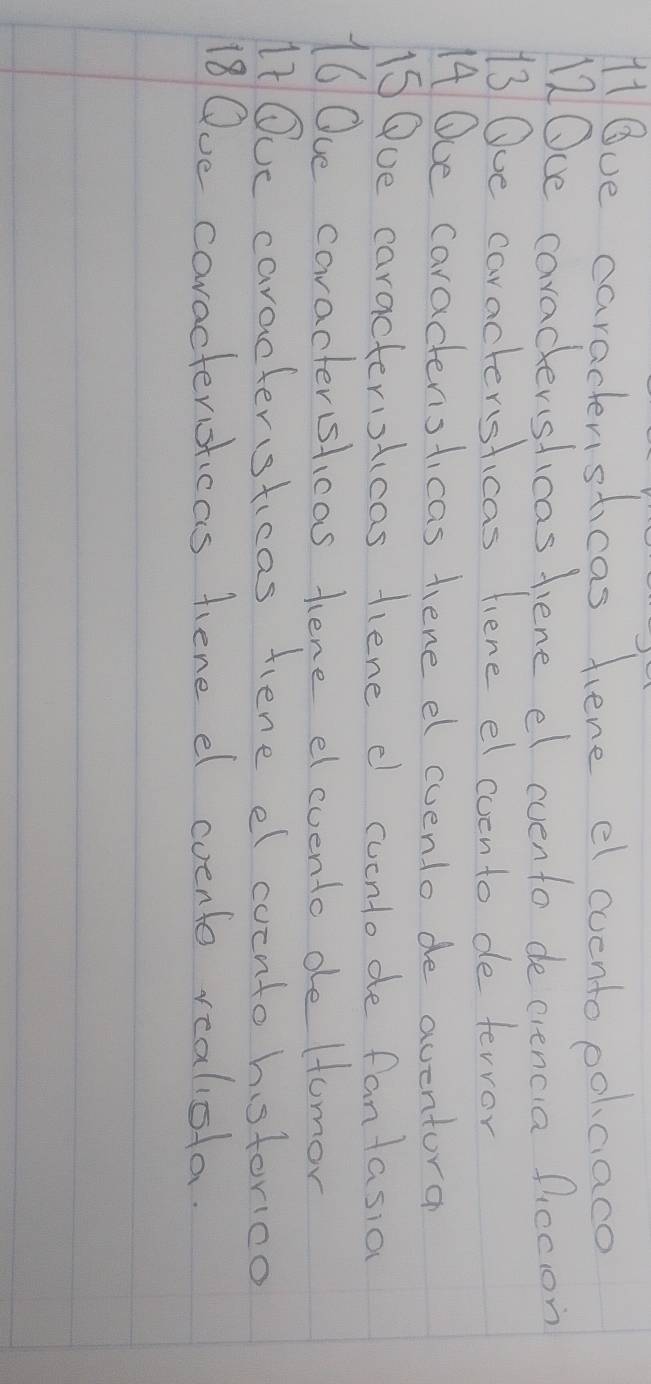 11 Que caracteristicas tiene el cuento policiaco
12 Que caracteristicas tiene el cuento de ciencia ficción
13 Que caracteristicas tiene el cuento de terror
14 Que caracteristicas tiene el cuento de aventura
15 Que caracteristicas tiene el cuento de fantasia
16 Que caracteristicas tiene el cuento de Humor
17 Que caracteristicas tiene el cuento historico
18 Que caracteristicas tiene el cuento realista.